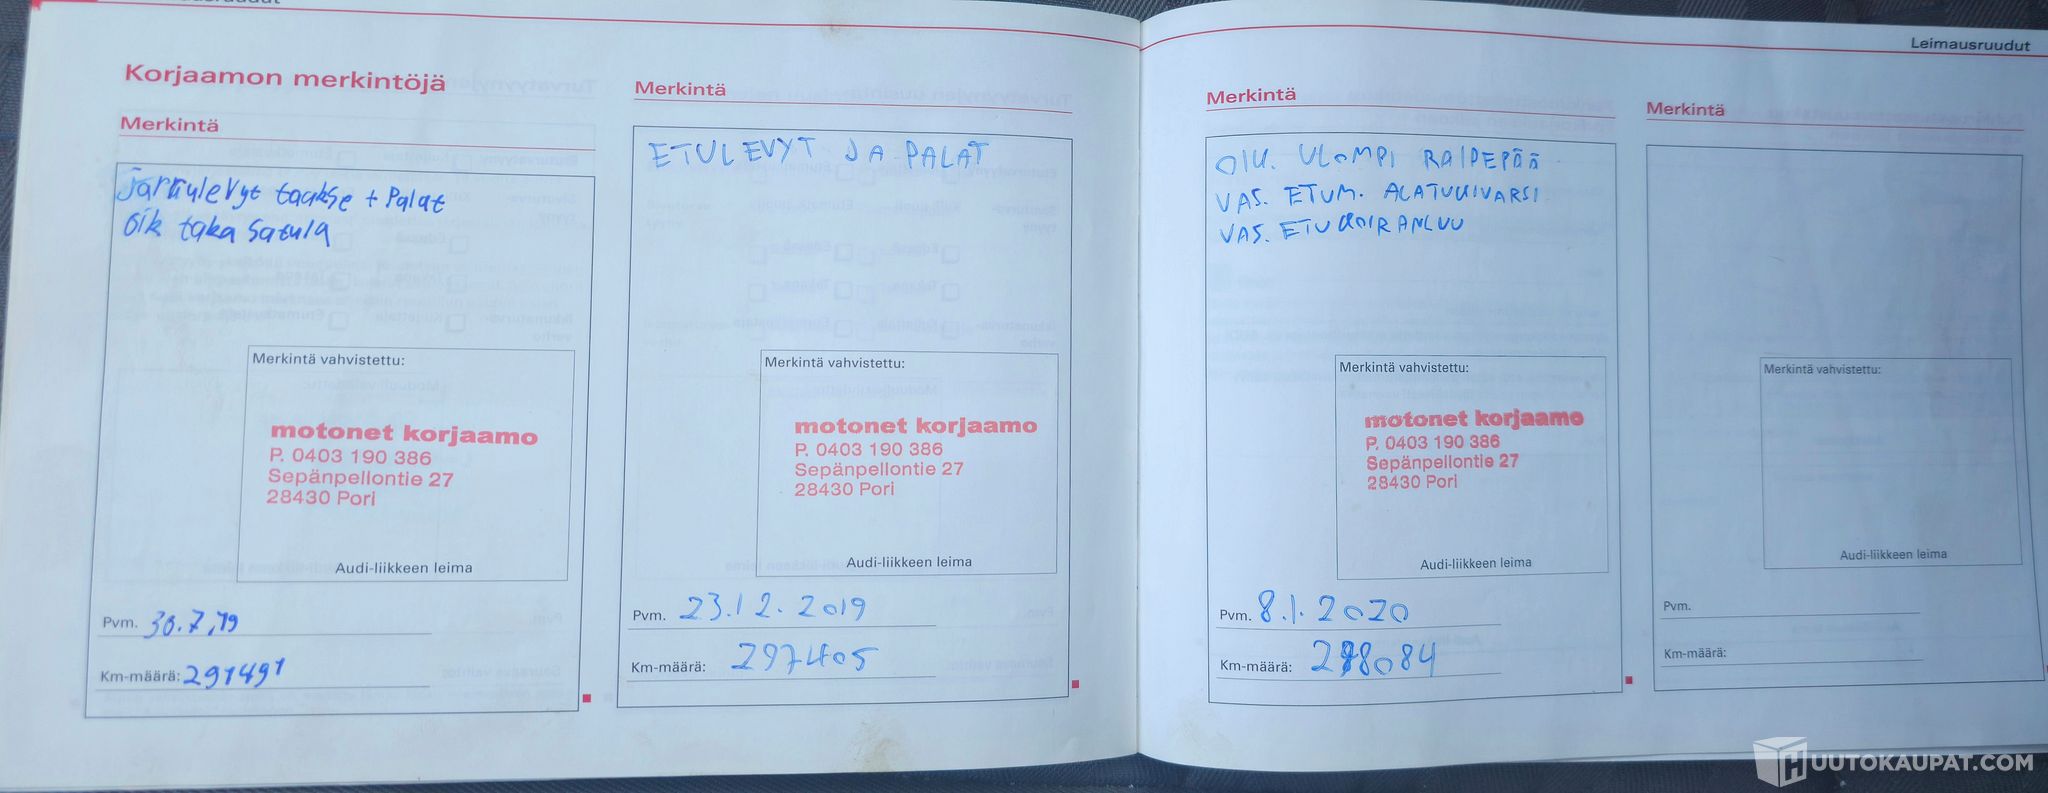 Leimausruudut
Korjaamon merkintöjä
Merkintä
Jarrulevyt taakse + Palat
Oik taka Satula
Merkintä vahvistettu:
motonet korjaamo
P. 0403 190 386
Sepänpellontie 27
28430 Pori
Audi-liikkeen leima
Pvm. 30.7.19
Km-määrä: 291491
Merkintä
ETULEVYT JA PALAT
Merkintä vahvistettu:
motonet korjaamo
P. 0403 190 386
Sepänpellontie 27
28430 Pori
Audi-liikkeen leima
Pvm. 23.12.2019
Km-määrä: 297405
Merkintä
OIK. ULOMPI RAIDEPÄÄ
VAS. ETUM. ALATUKIVARSI
VAS. ETU KOIRANLUU
Merkintä vahvistettu:
motonet korjaamo
P. 0403 190 386
Sepänpellontie 27
28430 Pori
Audi-liikkeen leima
Pvm. 8.1.2020
Km-määrä: 298084
Merkintä
Merkintä vahvistettu:
Audi-liikkeen leima
Pvm.
Km-määrä:
HUUTOKAUPAT.COM